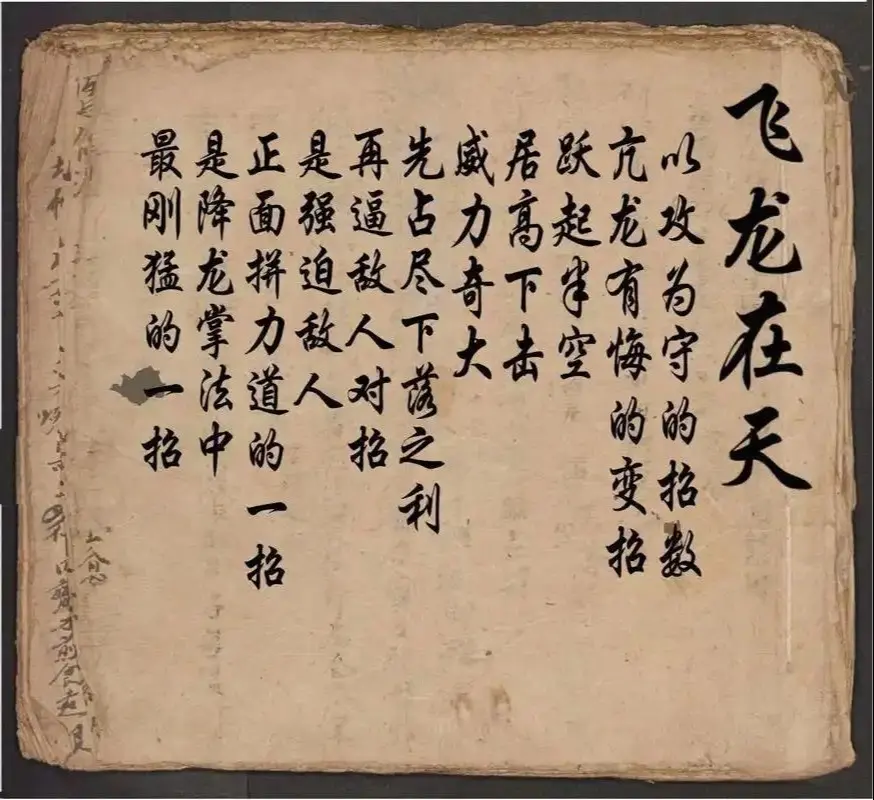 飞龙在天
以攻为守的招数
亢龙有悔的变招
跃起半空
居高下击
威力奇大
先占尽下落之利
再逼敌人对招
是强迫敌人
正面拼力道的一招
是降龙掌法中
最刚猛的一招